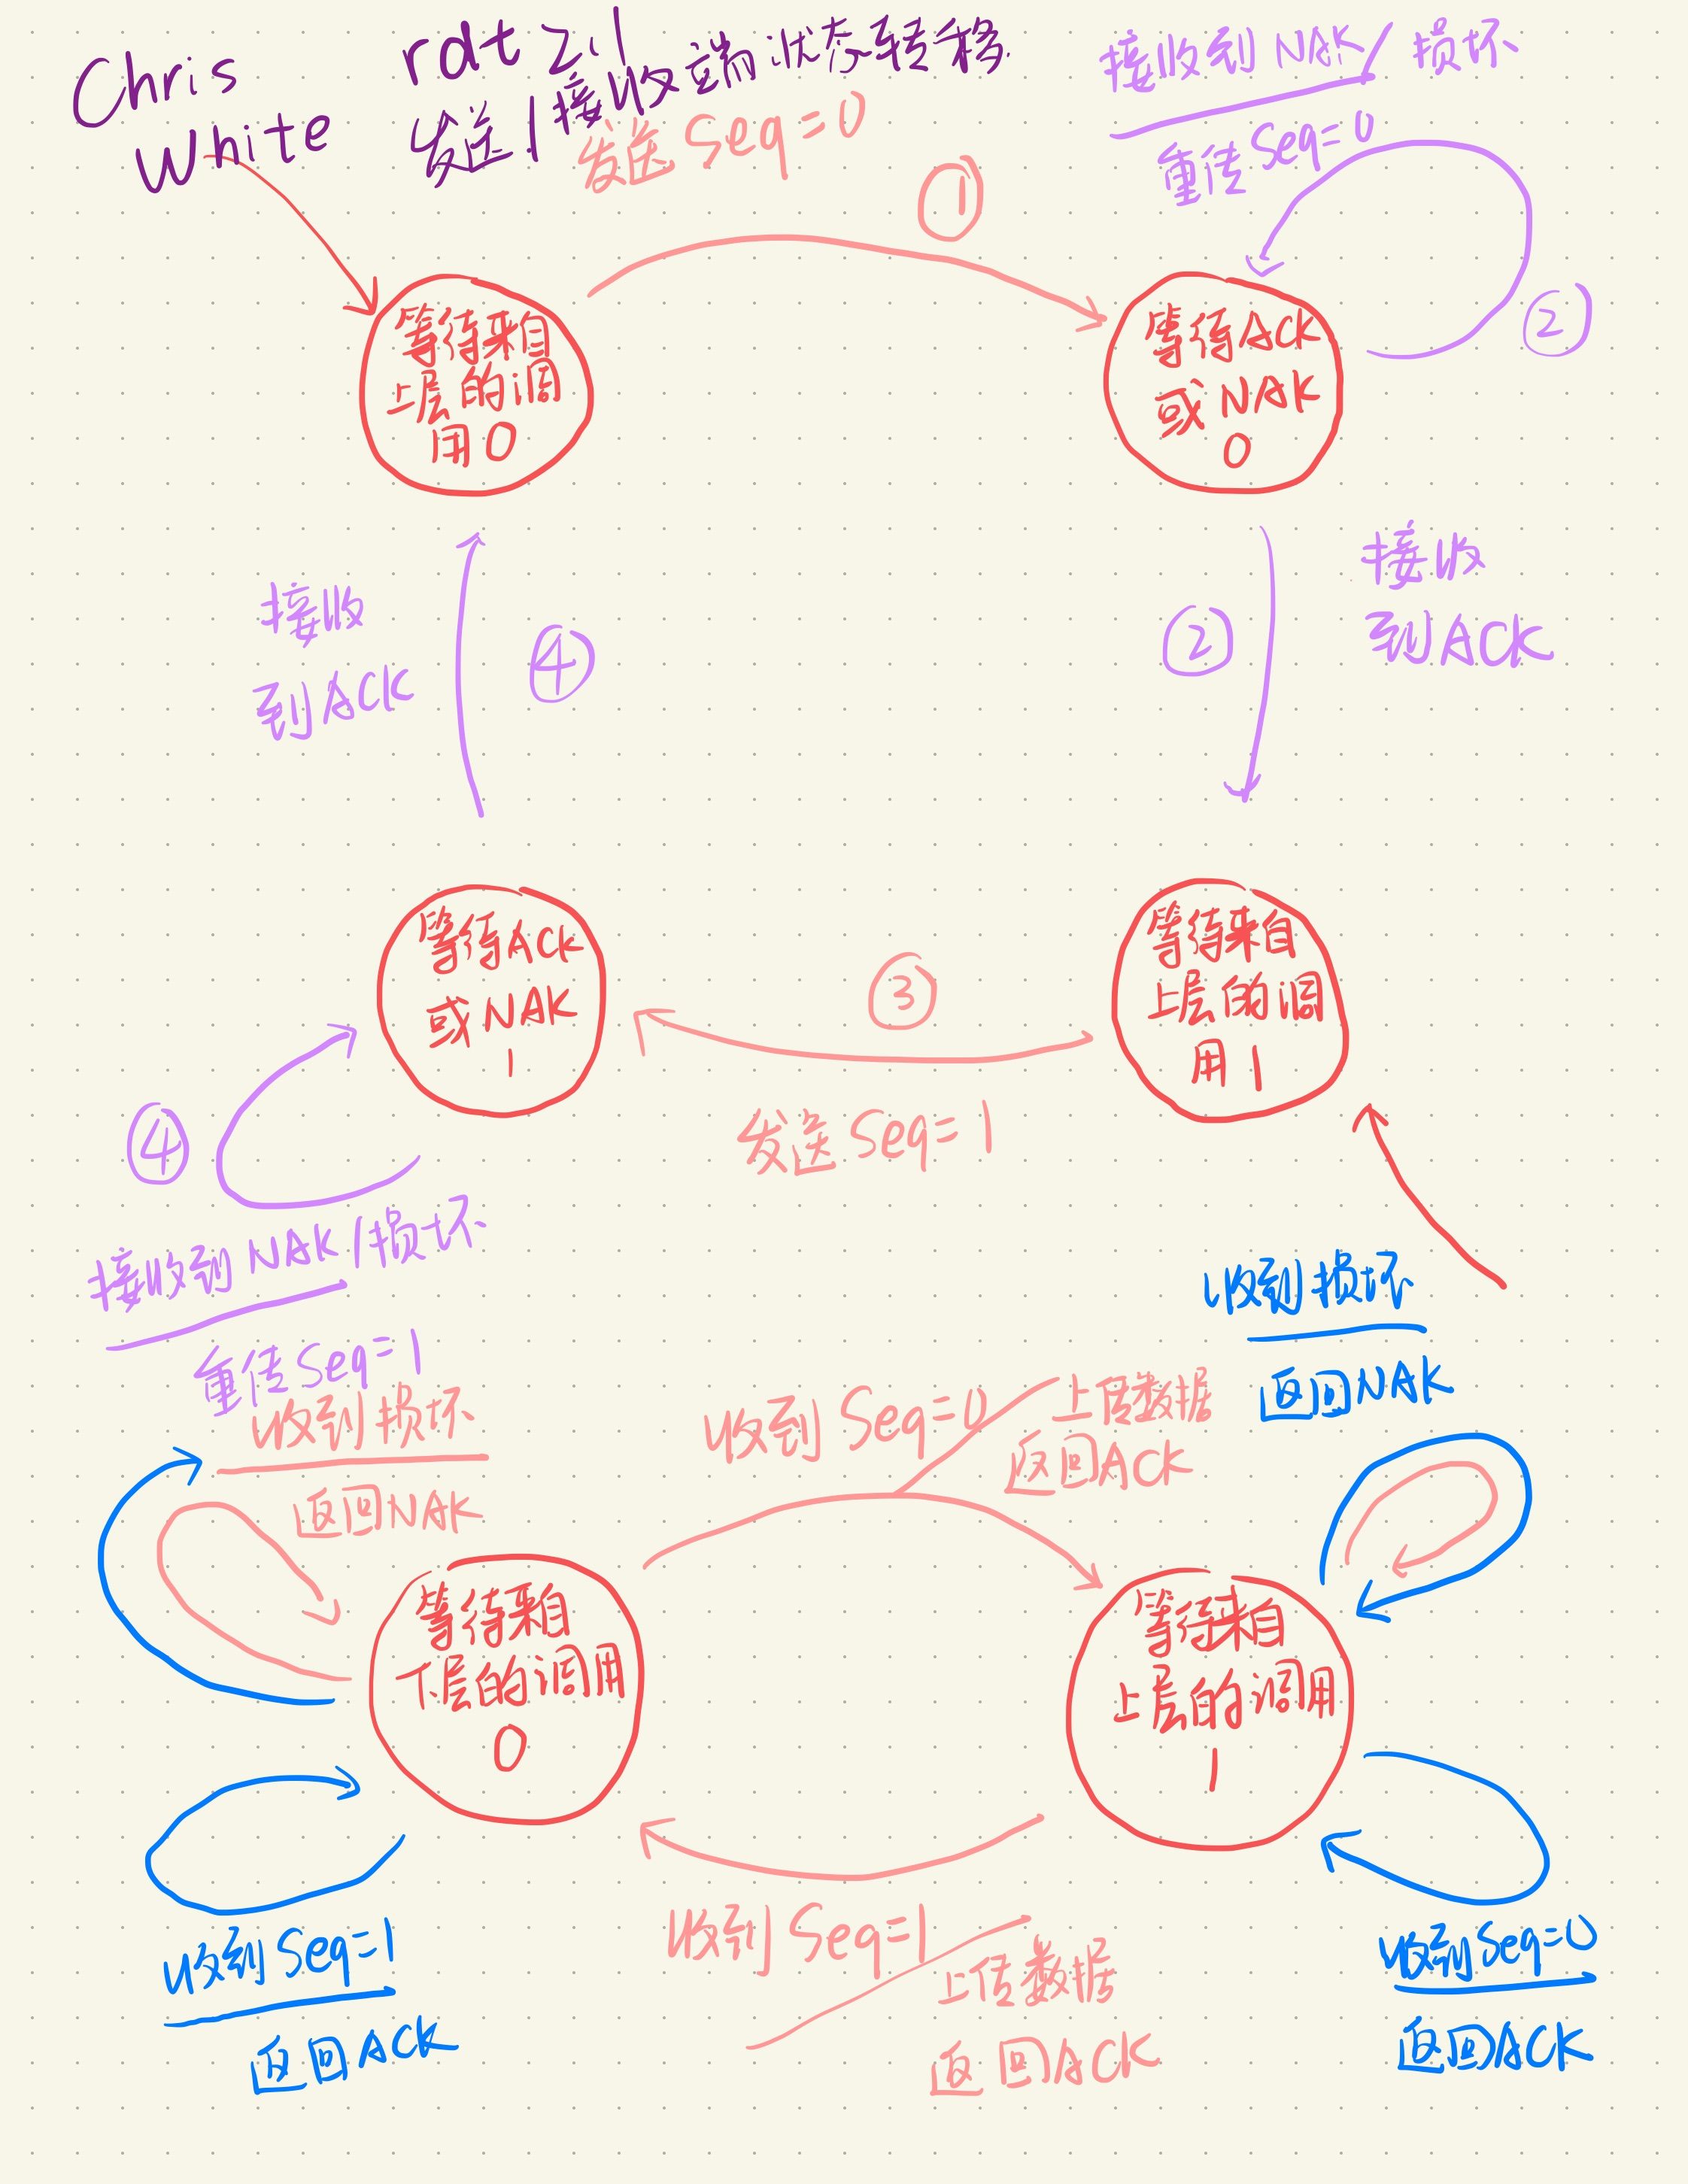 Chris
White
rdt 2.1
发送/接收端状态转移.
发送 Seq=0
①
接收到NAK/损坏
重传Seq=0
②
等待来自
上层的调
用0
等待Ack
或NAK
0
接收
到ACK
④
②
接收
到ACK
等待Ack
或NAK
1
③
等待来自
上层的调
用1
发送Seq=1
④
接收到NAK/损坏
重传Seq=1
收到损坏
返回NAK
收到损坏
返回NAK
收到Seq=0
上传数据
返回ACK
等待来自
下层的调用
0
等待来自
上层的调用
1
收到Seq=1
返回ACK
收到Seq=1
上传数据
返回ACK
收到Seq=0
返回ACK